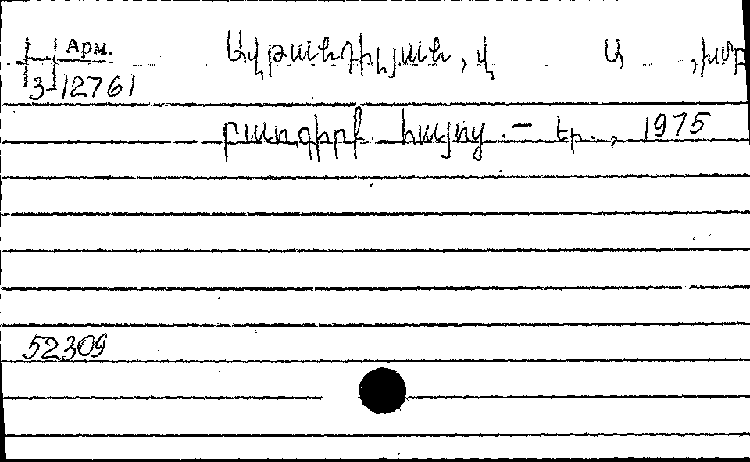 Арм. Ավթանդիլյան, վ Ա , խմբ
3-12761
բառգիրք հայոց. – Եր., 1975
52309